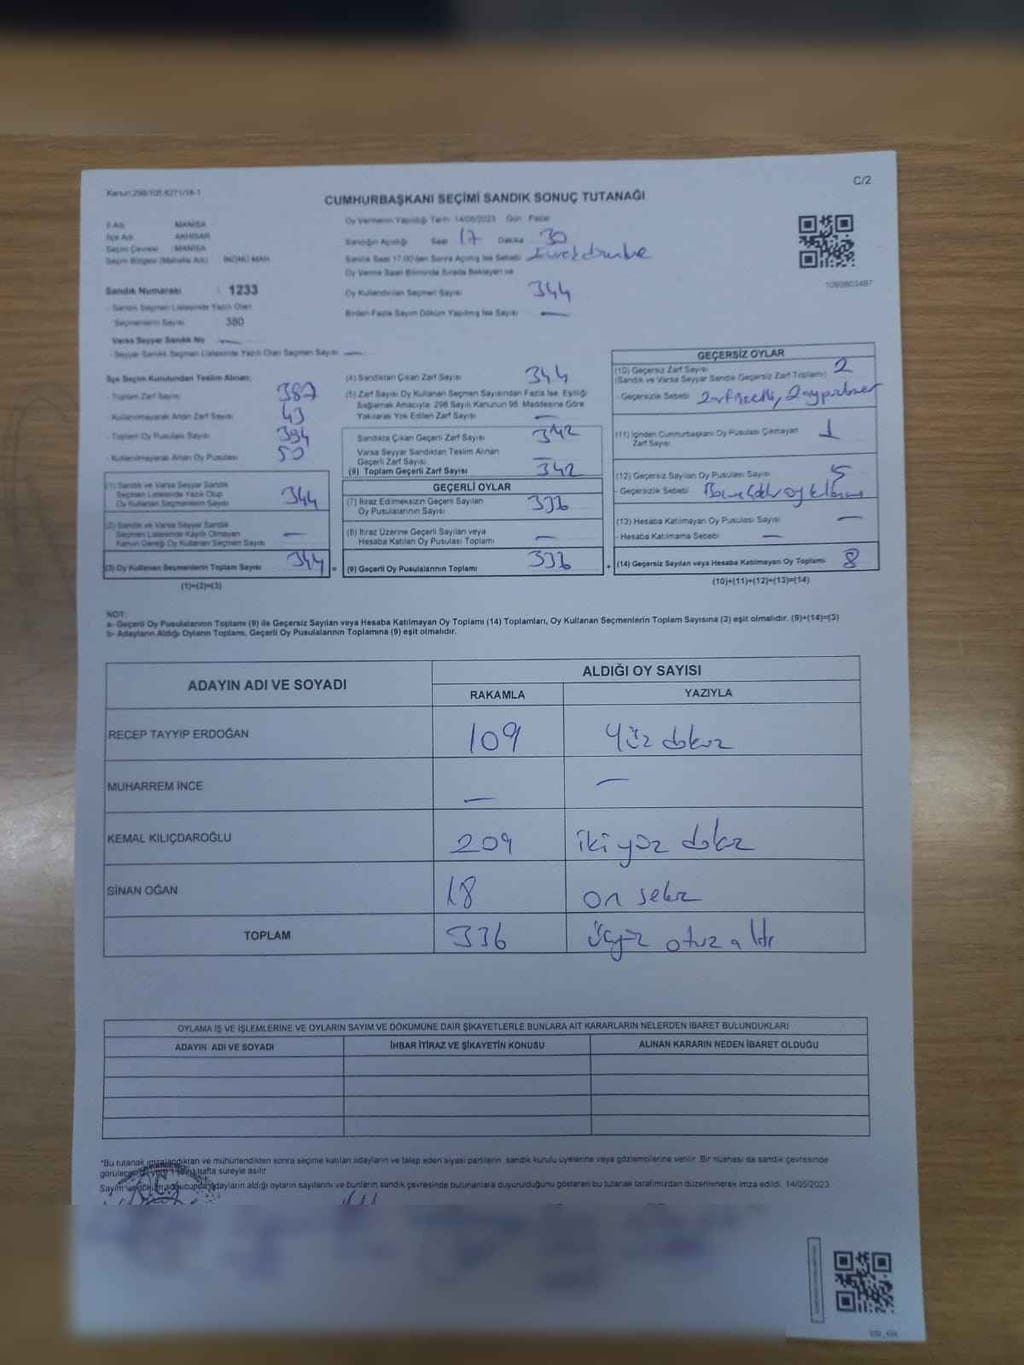 Kanun:298/101,6271/18-1
C/2
CUMHURBAŞKANI SEÇİMİ SANDIK SONUÇ TUTANAĞI
İl Adı MANİSA
İlçe Adı AKHİSAR
Seçim Çevresi : MANİSA
Seçim Bölgesi (Mahalle Adı) İNÖNÜ MAH.
Sandık Numarası : 1233
- Sandık Seçmen Listesinde Yazılı Olan
Seçmenlerin Sayısı 380
Varsa Seyyar Sandık No —
- Seyyar Sandık Seçmen Listesinde Yazılı Olan Seçmen Sayısı —
Oy Vermenin Yapıldığı Tarih 14/05/2023 Gün Pazar
Sandığın Açıldığı Saat 17 Dakika 30
Sandık Saat 17.00'den Sonra Açılmış İse Sebebi
Oy Verme Saati Bitiminde Sırada Bekleyen ve
Oy Kullandırılan Seçmen Sayısı 344
Birden Fazla Sayım Döküm Yapılmış İse Sayısı —
İlçe Seçim Kurulundan Teslim Alınan:
- Toplam Zarf Sayısı 387
- Kullanılmayarak Artan Zarf Sayısı 43
- Toplam Oy Pusulası Sayısı 394
- Kullanılmayarak Artan Oy Pusulası 50
(1) Sandık ve Varsa Seyyar Sandık
Seçmen Listesinde Yazılı Olup
Oy Kullanan Seçmenlerin Sayısı 344
(2) Sandık ve Varsa Seyyar Sandık
Seçmen Listesinde Kayıtlı Olmayan
Kanun Gereği Oy Kullanan Seçmen Sayısı —
(3) Oy Kullanan Seçmenlerin Toplam Sayısı 344
(1)+(2)=(3)
(4) Sandıktan Çıkan Zarf Sayısı 344
(5) Zarf Sayısı Oy Kullanan Seçmen Sayısından Fazla İse, Eşitliği
Sağlamak Amacıyla 298 Sayılı Kanunun 98. Maddesine Göre
Yakılarak Yok Edilen Zarf Sayısı —
Sandıkta Çıkan Geçerli Zarf Sayısı 342
Varsa Seyyar Sandıktan Teslim Alınan
Geçerli Zarf Sayısı —
(6) Toplam Geçerli Zarf Sayısı 342
GEÇERLİ OYLAR
(7) İtiraz Edilmeksizin Geçerli Sayılan
Oy Pusulalarının Sayısı 336
(8) İtiraz Üzerine Geçerli Sayılan veya
Hesaba Katılan Oy Pusulası Toplamı —
(9) Geçerli Oy Pusulalarının Toplamı 336
GEÇERSİZ OYLAR
(10) Geçersiz Zarf Sayısı
(Sandık ve Varsa Seyyar Sandık Geçersiz Zarf Toplamı) 2
- Geçersizlik Sebebi
(11) İçinden Cumhurbaşkanı Oy Pusulası Çıkmayan
Zarf Sayısı 1
(12) Geçersiz Sayılan Oy Pusulası Sayısı 5
- Geçersizlik Sebebi
(13) Hesaba Katılmayan Oy Pusulası Sayısı —
- Hesaba Katılmama Sebebi —
(14) Geçersiz Sayılan veya Hesaba Katılmayan Oy Toplamı 8
(10)+(11)+(12)+(13)=(14)
NOT:
a- Geçerli Oy Pusulalarının Toplamı (9) ile Geçersiz Sayılan veya Hesaba Katılmayan Oy Toplamı (14) Toplamları, Oy Kullanan Seçmenlerin Toplam Sayısına (3) eşit olmalıdır. (9)+(14)=(3)
b- Adayların Aldığı Oyların Toplamı, Geçerli Oy Pusulalarının Toplamına (9) eşit olmalıdır.
ADAYIN ADI VE SOYADI ALDIĞI OY SAYISI
RAKAMLA YAZIYLA
RECEP TAYYİP ERDOĞAN 109 Yüz dokuz
MUHARREM İNCE — —
KEMAL KILIÇDAROĞLU 209 iki yüz dokuz
SİNAN OĞAN 18 on sekiz
TOPLAM 336 üçyüz otuz altı
OYLAMA İŞ VE İŞLEMLERİNE VE OYLARIN SAYIM VE DÖKÜMÜNE DAİR ŞİKAYETLERLE BUNLARA AİT KARARLARIN NELERDEN İBARET BULUNDUKLARI
ADAYIN ADI VE SOYADI İHBAR İTİRAZ VE ŞİKAYETİN KONUSU ALINAN KARARIN NEDEN İBARET OLDUĞU
*Bu tutanak imzalandıktan ve mühürlendikten sonra seçime katılan adayların ve talep eden siyasi partilerin, sandık kurulu üyelerine veya gözlemcilerine verilir. Bir nüshası da sandık çevresinde
hafta süreyle asılır.
adayların aldığı oyların sayılarını ve bunların sandık çevresinde bulunanlara duyurulduğunu gösteren bu tutanak tarafımızdan düzenlenerek imza edildi. 14/05/2023